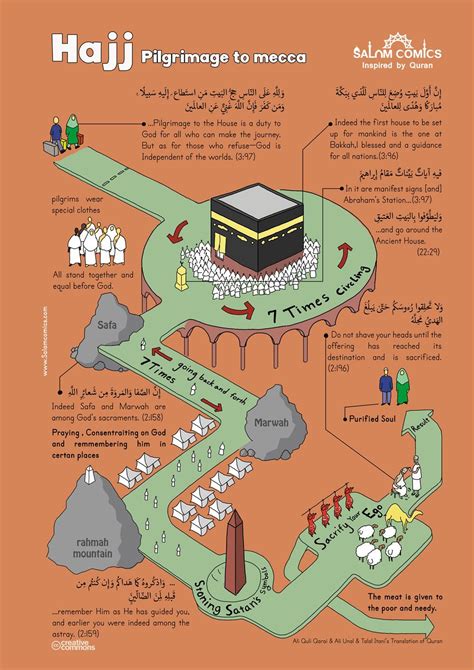 Hajj Pilgrimage to mecca
SALAM COMICS
Inspired by Quran
وَلِلَّهِ عَلَى النَّاسِ حِجُّ البَيْتِ مَنِ استَطاعَ إِلَيْهِ سَبِيلًا ۚ
وَمَن كَفَرَ فَإِنَّ اللَّهَ غَنِيٌّ عَنِ العالَمِينَ
...Pilgrimage to the House is a duty to
God for all who can make the journey.
But as for those who refuse—God is
Independent of the worlds. (3:97)
إِنَّ أَوَّلَ بَيْتٍ وُضِعَ لِلنَّاسِ لَلَّذِي بِبَكَّةَ
مُبارَكًا وَهُدًى لِلعالَمِينَ
Indeed the first house to be set
up for mankind is the one at
Bakkah,l blessed and a guidance
for all nations.(3:96)
فِيهِ آياتٌ بَيِّناتٌ مَقامُ إِبراهِيمَ
In it are manifest signs [and]
Abraham's Station...(3:97)
وَليَطَّوَّفُوا بِالبَيْتِ العَتِيقِ
...and go around the
Ancient House.
(22:29)
pilgrims wear
special clothes
All stand together and
equal before God.
7 Times Circling
وَلا تَحلِقُوا رُءُوسَكُم حَتَّىٰ يَبلُغَ
الهَديُ مَحِلَّهُ
Do not shave your heads until the
offering has reached its
destination and is sacrificed.
(2:196)
www.Salamcomics.com
Safa
7 Times
going back and forth
Marwah
إِنَّ الصَّفا وَالمَروَةَ مِن شَعائِرِ اللَّهِ
Indeed Safa and Marwah are
among God's sacraments. (2:158)
Praying , Consentraiting on God
and remmembering him in
certan places
Purified Soul
Result
rahmah
mountain
Sacrify Your Ego
Stoning Satan's Symbols
... وَاذكُرُوهُ كَما هَداكُم وَإِن كُنتُم مِن
قَبلِهِ لَمِنَ الضَّالِّينَ
...remember Him as He has guided you,
and earlier you were indeed among the
astray. (2:159)
The meat is given to
the poor and needy.
creative
commons
Ali Quli Qarai & Ali Unal & Talal Itani's Translation of Quran